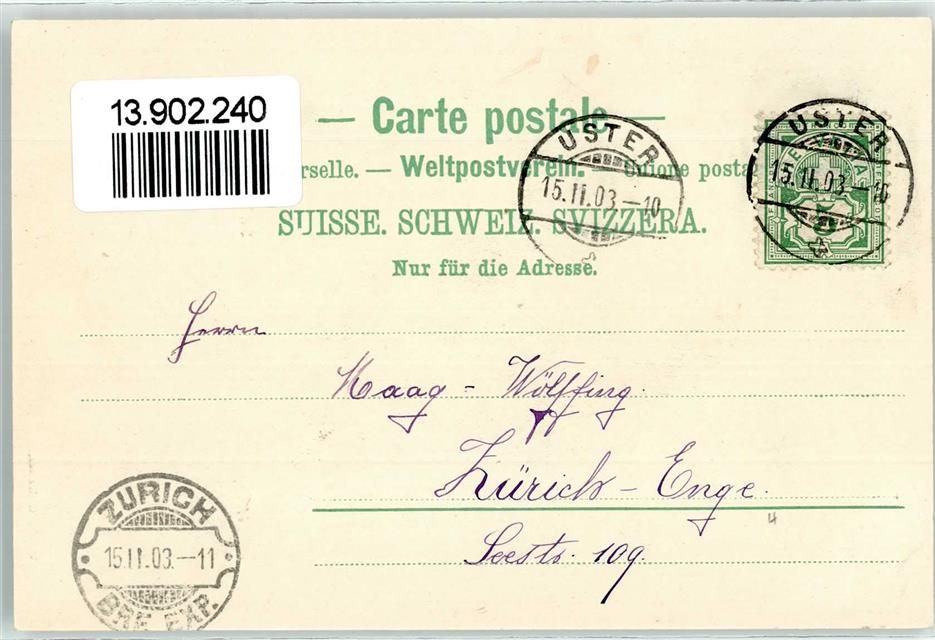 13.902.240
— Carte postale —
erselle. — Weltpostverein. — Unione posta
SUISSE. SCHWEIZ. SVIZZERA.
Nur für die Adresse.
USTER
15.II.03.-10
USTER
15.II.03.-10
Herrn
Maag - Wölffing.
Zürich - Enge.
4
Seestr. 109.
ZÜRICH
15.II.03.-11
BRF. EXP.